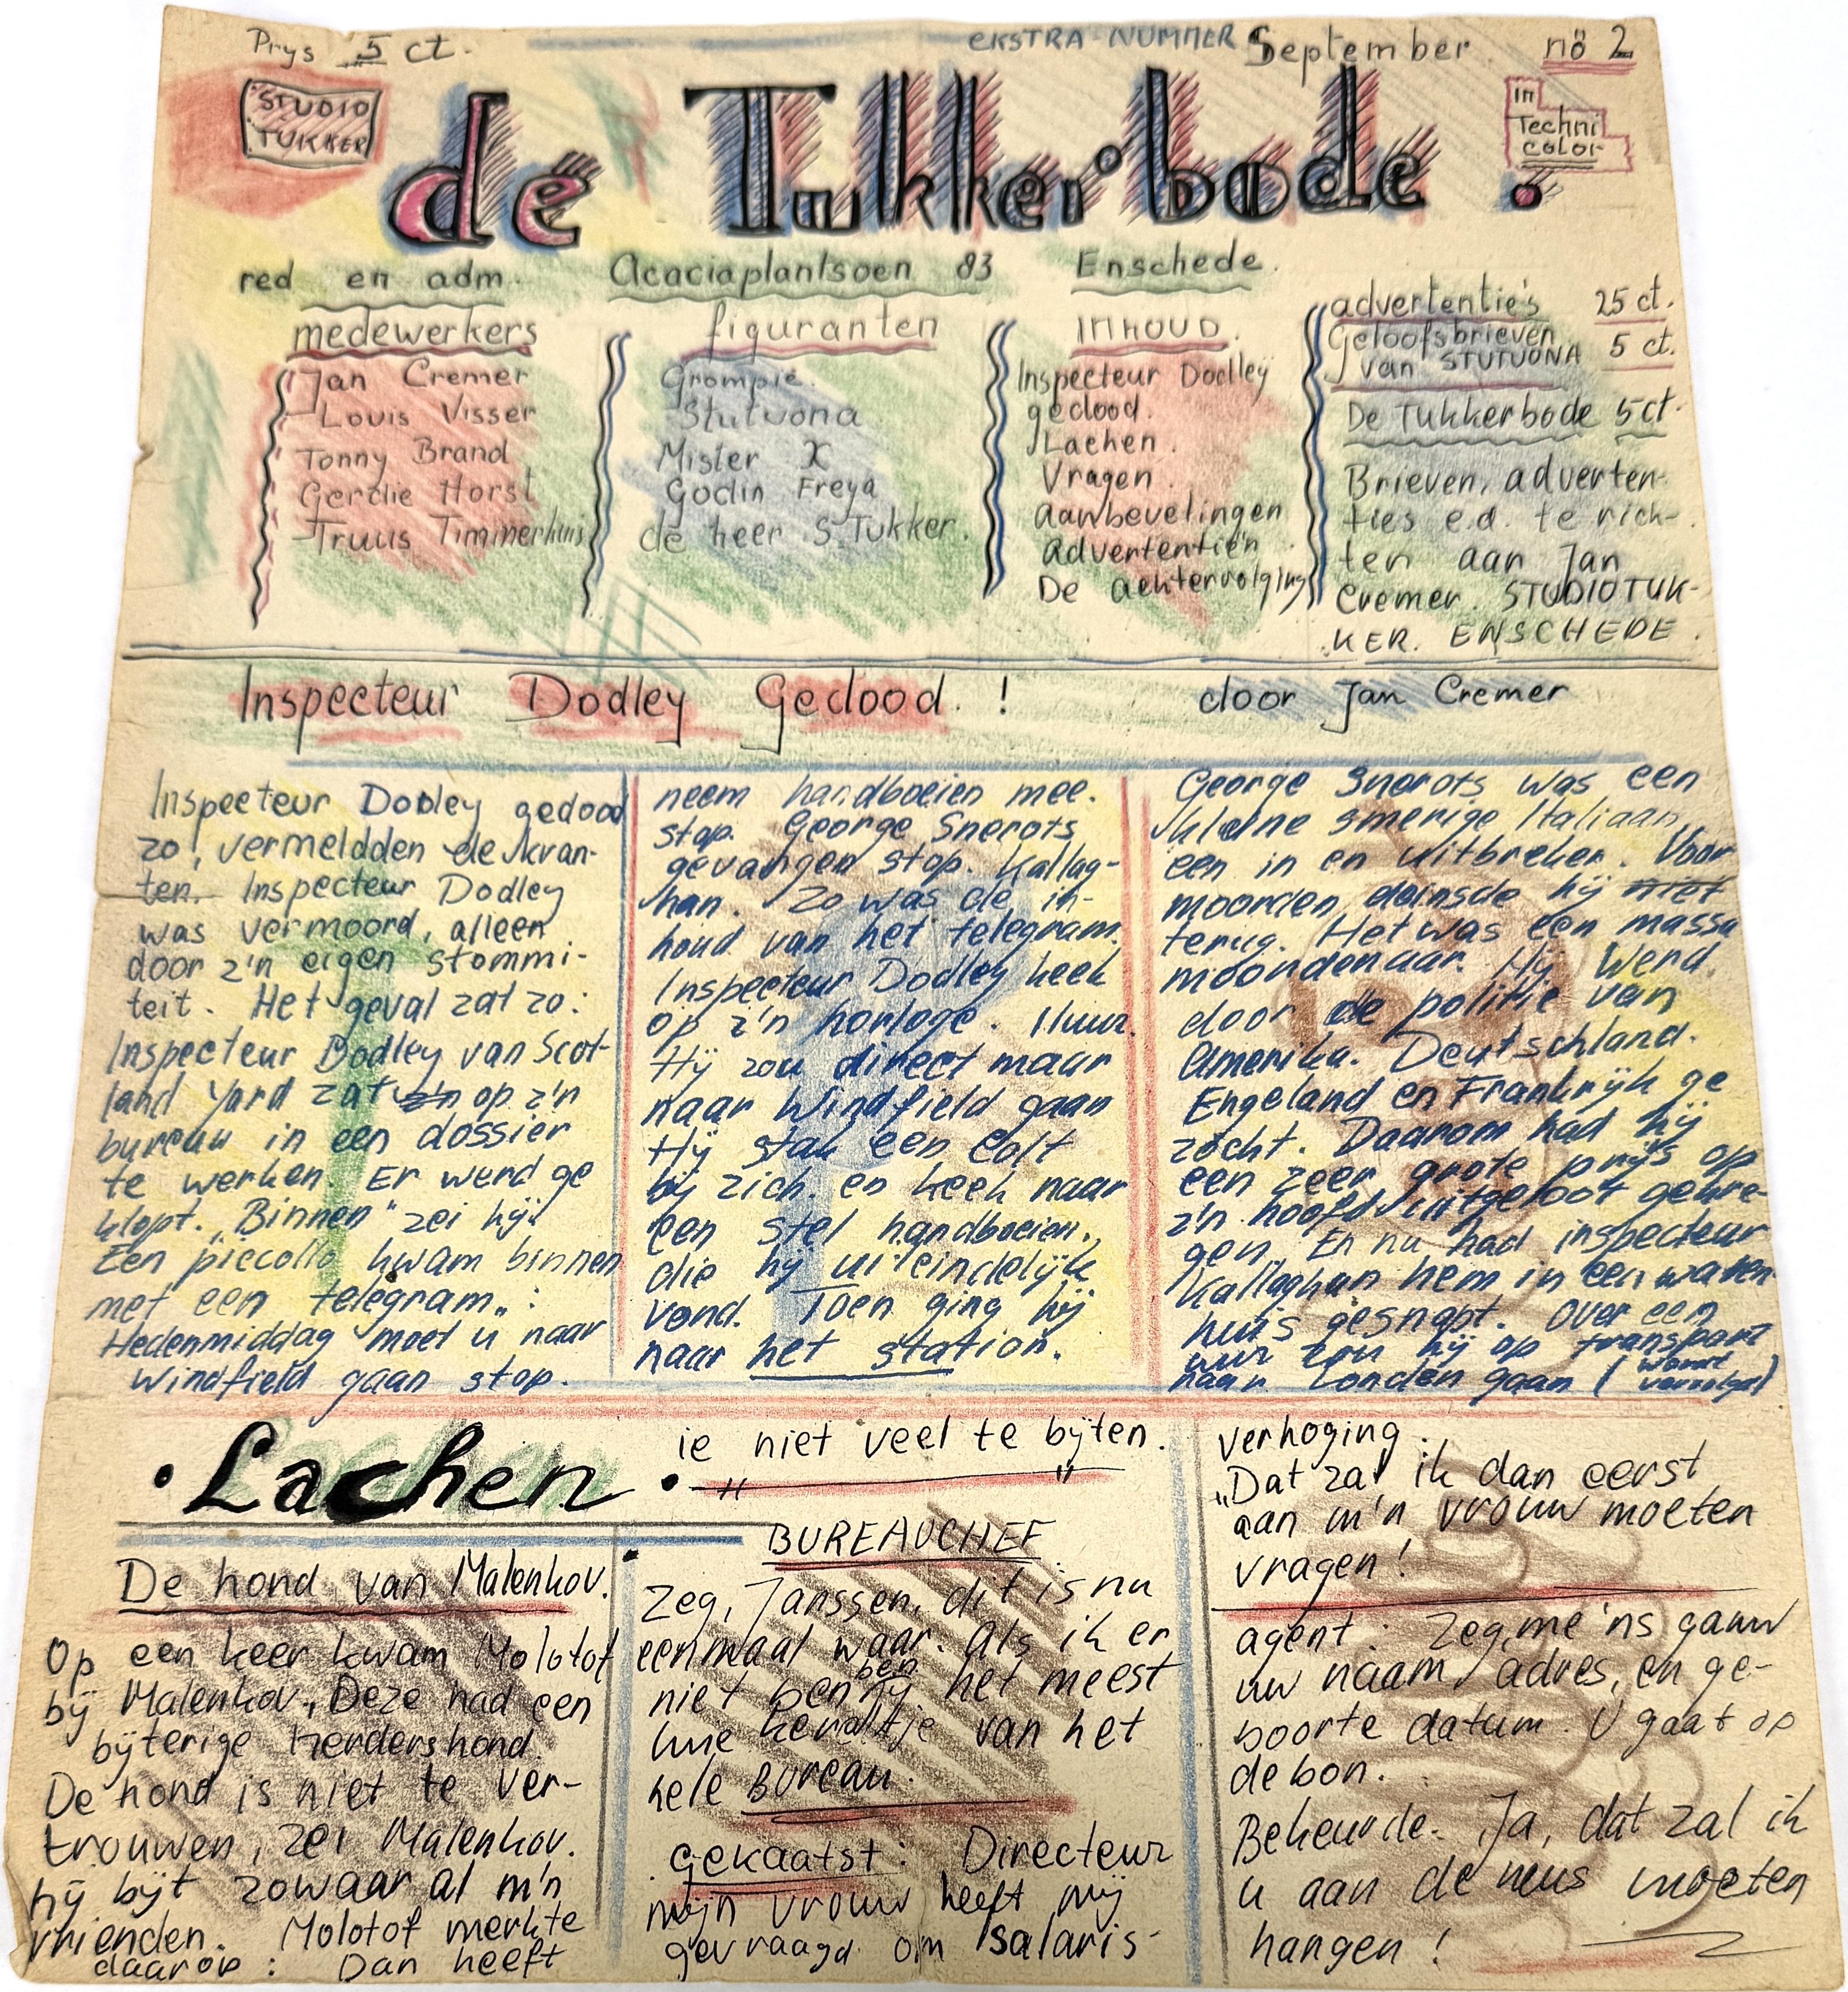 Prys 5 ct.
EKSTRA-NUMMER
September
no 2
STUDIO
TUKKER
de Tukkerbode.
In
Techni
color
red en adm. Acaciaplantsoen 83 Enschede.
medewerkers
Jan Cremer
Louis Visser
Tonny Brand
Gerdie Horst
Truus Timmerhuis
figuranten
Grompie.
Stutuona
Mister X
Godin Freya
de heer S. Tukker.
INHOUD.
Inspecteur Dodley
gedood.
Lachen.
Vragen.
aanbevelingen
advertentie'n
De achtervolging
advertentie's 25 ct.
Geloofsbrieven
van STUTUONA 5 ct.
De Tukkerbode 5 ct.
Brieven, adverten-
ties e.d. te rich-
ten aan Jan
Cremer. STUDIO TUK-
KER. ENSCHEDE.
Inspecteur Dodley Gedood! door Jan Cremer
Inspecteur Dodley gedood
zo, vermeldden de kran-
ten. Inspecteur Dodley
was vermoord, alleen
door z'n eigen stommi-
teit. Het geval zat zo:
Inspecteur Dodley van Scot-
land Yard zat op z'n
bureau in een dossier
te werken. Er werd ge
klopt. „Binnen" zei hij.
Een piccollo kwam binnen
met een telegram„:
Hedenmiddag moet u naar
Windfield gaan stop.
neem handboeien mee.
stop. George Snerots
gevangen stop. Kallag-
han. Zo was de in-
houd van het telegram.
Inspecteur Dodley keek
op z'n horloge. 11 uur.
Hij zou direct maar
naar Windfield gaan
Hij stak een colt
bij zich. en keek naar
een stel handboeien,
die hij uiteindelijk
vond. Toen ging hij
naar het station.
George Snerots was een
kleine smerige Italiaan,
een in en uitbreker. Voor
moorden deinsde hij niet
terug. Het was een massa
moordenaar. Hij werd
door de politie van
Amerika. Deutschland.
Engeland en Frankrijk ge
zocht. Daarom had hij
een zeer grote prijs op
z'n hoofd uitgeloot gekre-
gen. En nu had inspecteur
Kallaghan hem in een waren
huis gesnapt. Over een
uur zou hij op transport
naar Londen gaan (wordt
vervolgd)
• Lachen •
De hond van Malenkov.
Op een keer kwam Molotof
bij Malenkov. Deze had een
bijterige herdershond.
De hond is niet te ver-
trouwen, zei Malenkov.
hij bijt zowaar al m'n
vrienden. Molotof merkte
daarop: Dan heeft
ie niet veel te bijten.
BUREAUCHEF
Zeg, Janssen, dit is nu
eenmaal waar. Als ik er
niet ben ben jij het meest
luie kereltje van het
hele BUREAU.
gekaatst: Directeur
mijn vrouw heeft mij
gevraagd om salaris-
verhoging.
„Dat zal ik dan eerst
aan m'n vrouw moeten
vragen!
agent: Zeg, me 'ns gauw
uw naam, adres, en ge-
boorte datum. U gaat op
de bon.
Bekeurde. Ja, dat zal ik
u aan de neus moeten
hangen!